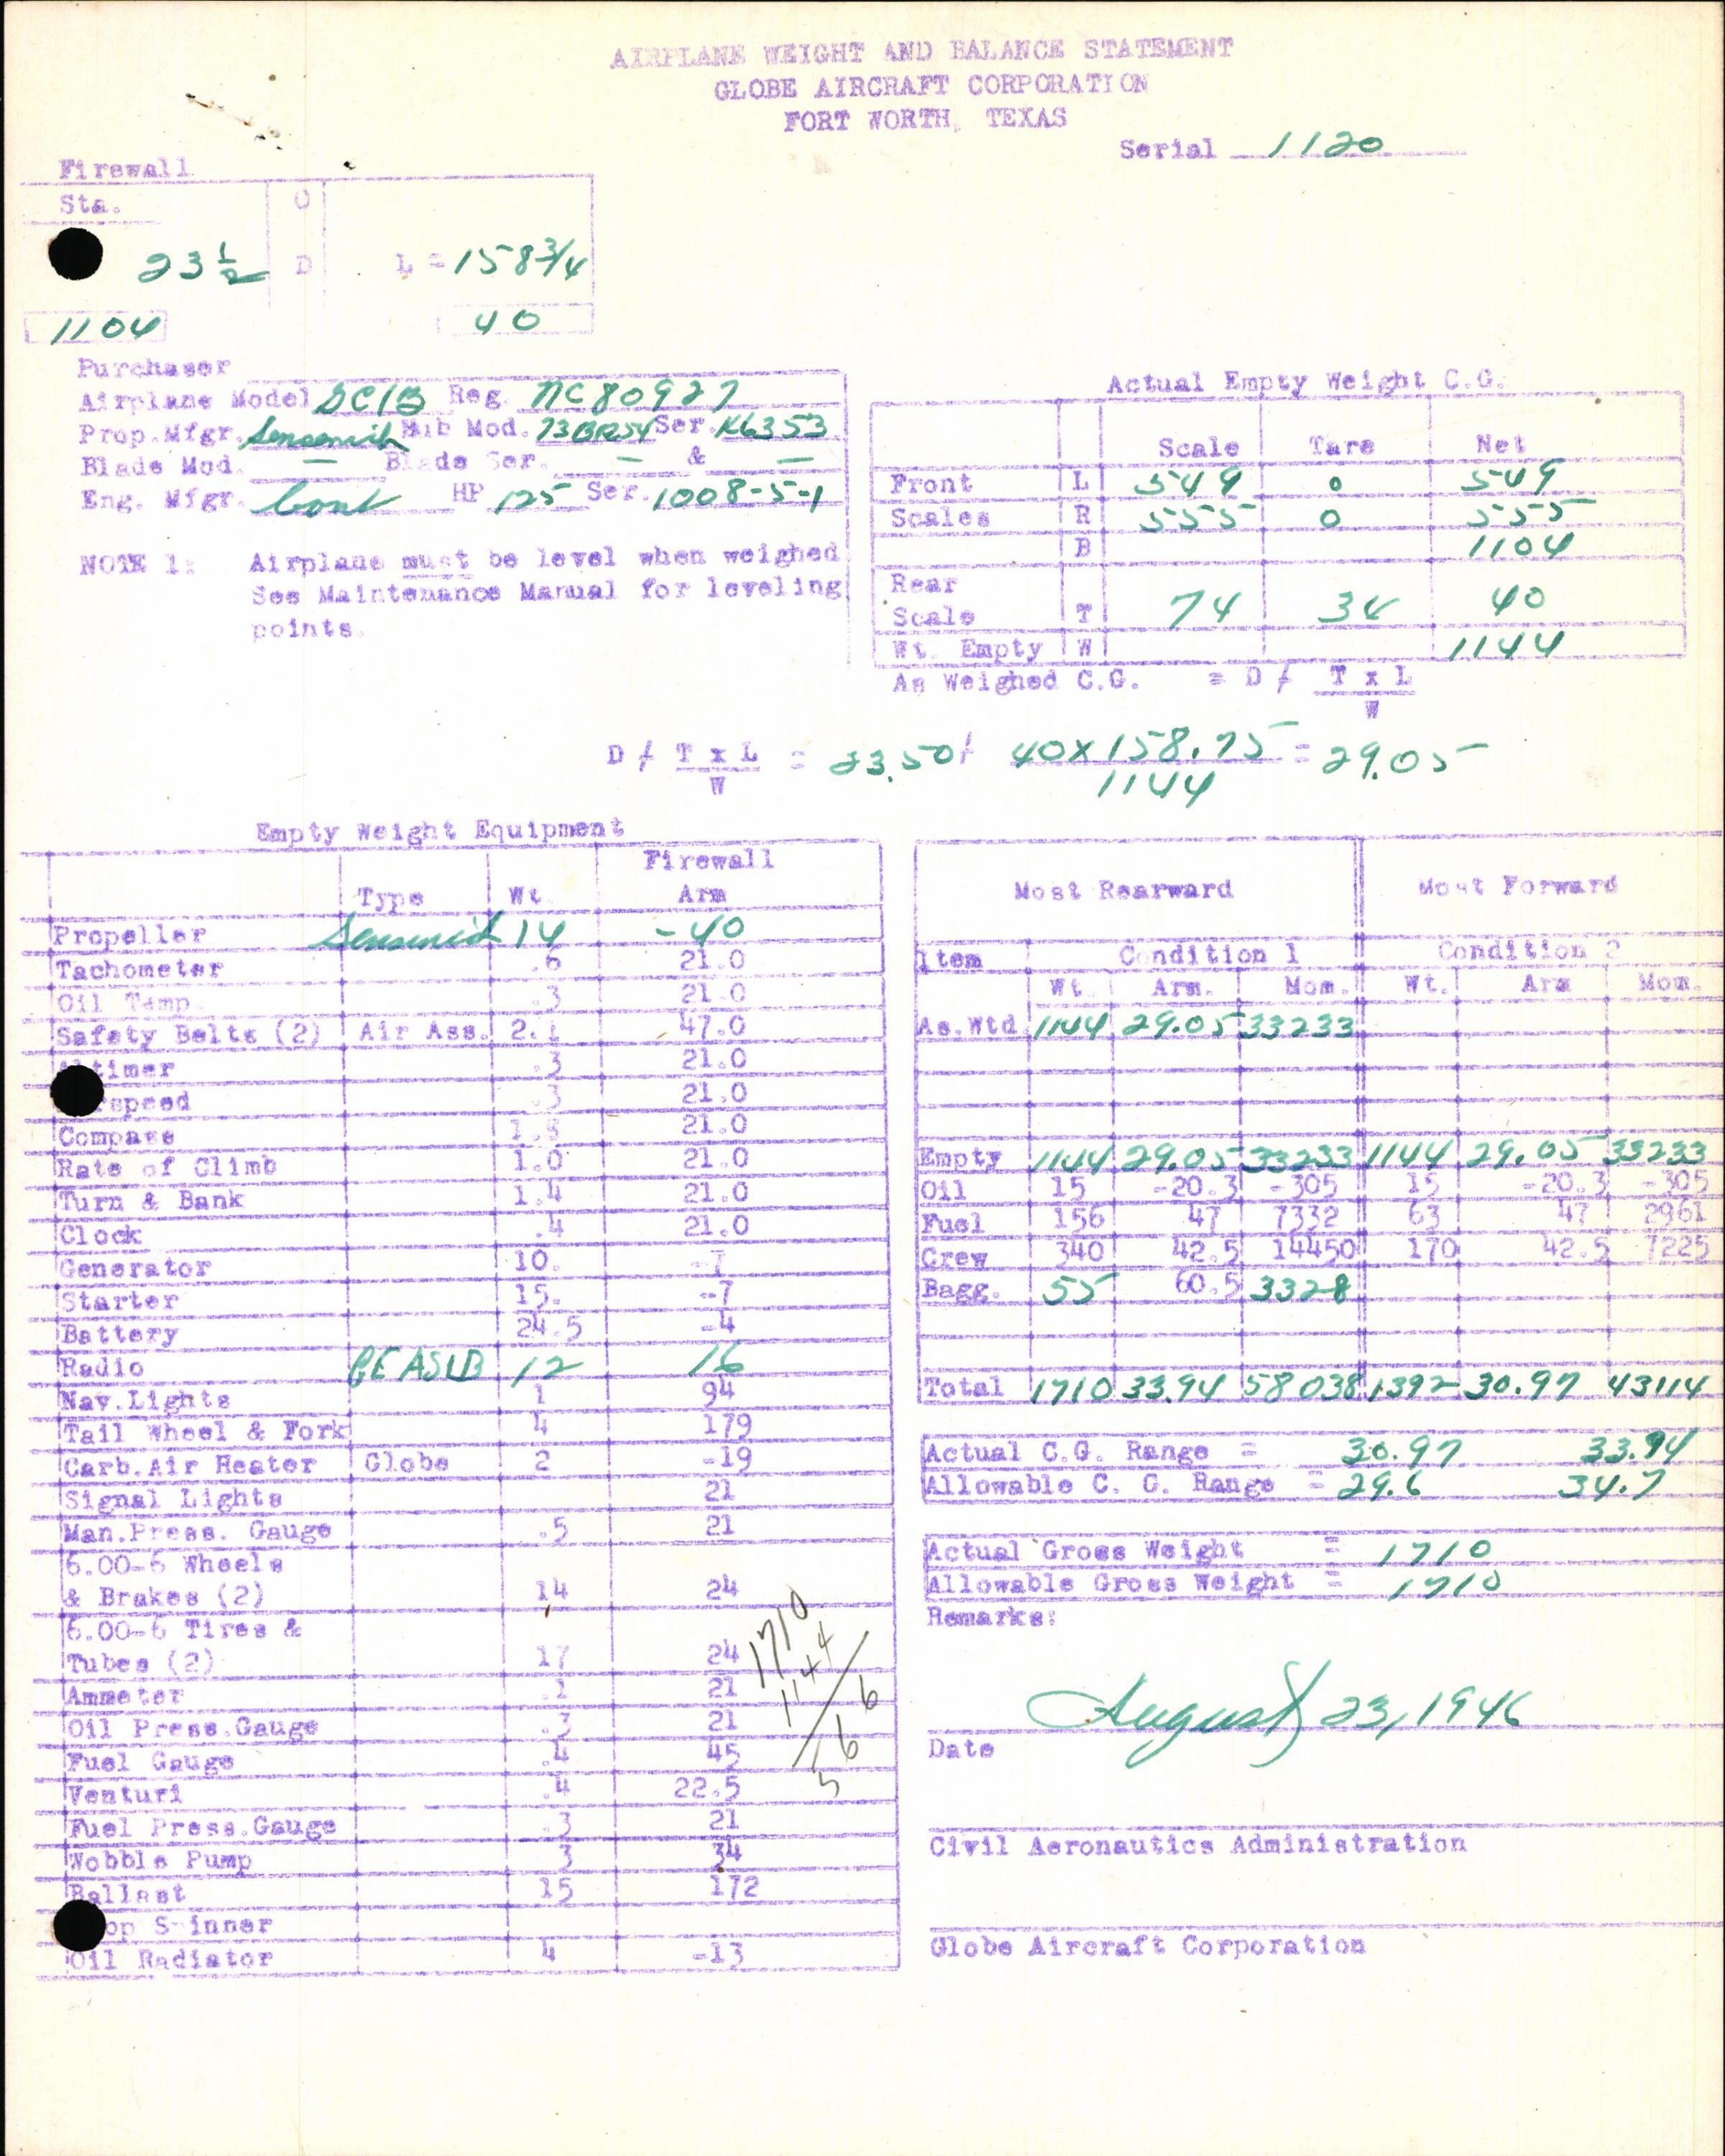 AIRPLANE WEIGHT AND BALANCE STATEMENT
GLOBE AIRCRAFT CORPORATION
FORT WORTH, TEXAS
Serial 1120
Firewall
Sta. 0
23 1/2 D L = 158 3/4
1104 40
Purchaser
Airplane Model GC1B Reg. NC80927
Prop. Mfgr. Sensenich Hub Mod. 73BR54 Ser. K6353
Blade Mod. — Blade Ser. — & —
Eng. Mfgr. Cont HP 125 Ser. 1008-5-1
NOTE 1: Airplane must be level when weighed
See Maintenance Manual for leveling
points.
Actual Empty Weight C.G.
Scale Tare Net
Front L 549 0 549
Scales R 555 0 555
B 1104
Rear
Scale T 74 34 40
Wt. Empty W 1144
As Weighed C.G. = D / T x L
W
D / T x L = 23.50 / 40 x 158.75 = 29.05
W 1144
Empty Weight Equipment
Firewall
Type Wt. Arm
Propeller Sensenich 14 -40
Tachometer .6 21.0
Oil Temp. .3 21.0
Safety Belts (2) Air Ass. 2.1 47.0
timer .3 21.0
rspeed .3 21.0
Compass 1.8 21.0
Rate of Climb 1.0 21.0
Turn & Bank 1.4 21.0
Clock .4 21.0
Generator 10. -7
Starter 15. -7
Battery 24.5 -4
Radio GE AS1B 12 16
Nav.Lights 1 94
Tail Wheel & Fork 4 179
Carb.Air Heater Globe 2 -19
Signal Lights 21
Man.Press. Gauge .5 21
6.00-6 Wheels
& Brakes (2) 14 24
6.00-6 Tires &
Tubes (2) 17 24
Ammeter 21
Oil Press.Gauge .3 21
Fuel Gauge .4 45
Venturi .4 22.5
Fuel Press.Gauge .3 21
Wobble Pump 3 34
Ballast 15 172
op S inner
Oil Radiator 4 -13
1710
1144
566
Most Rearward Most Forward
Item Condition 1 Condition 2
Wt. Arm. Mom. Wt. Arm Mom.
As.Wtd 1144 29.05 33233
Empty 1144 29.05 33233 1144 29.05 33233
Oil 15 -20.3 -305 15 -20.3 -305
Fuel 156 47 7332 63 47 2961
Crew 340 42.5 14450 170 42.5 7225
Bagg. 55 60.5 3328
Total 1710 33.94 58038 1392 30.97 43114
Actual C.G. Range = 30.97 33.94
Allowable C. G. Range = 29.6 34.7
Actual Gross Weight = 1710
Allowable Gross Weight = 1710
Remarks:
August 23, 1946
Date
Civil Aeronautics Administration
Globe Aircraft Corporation